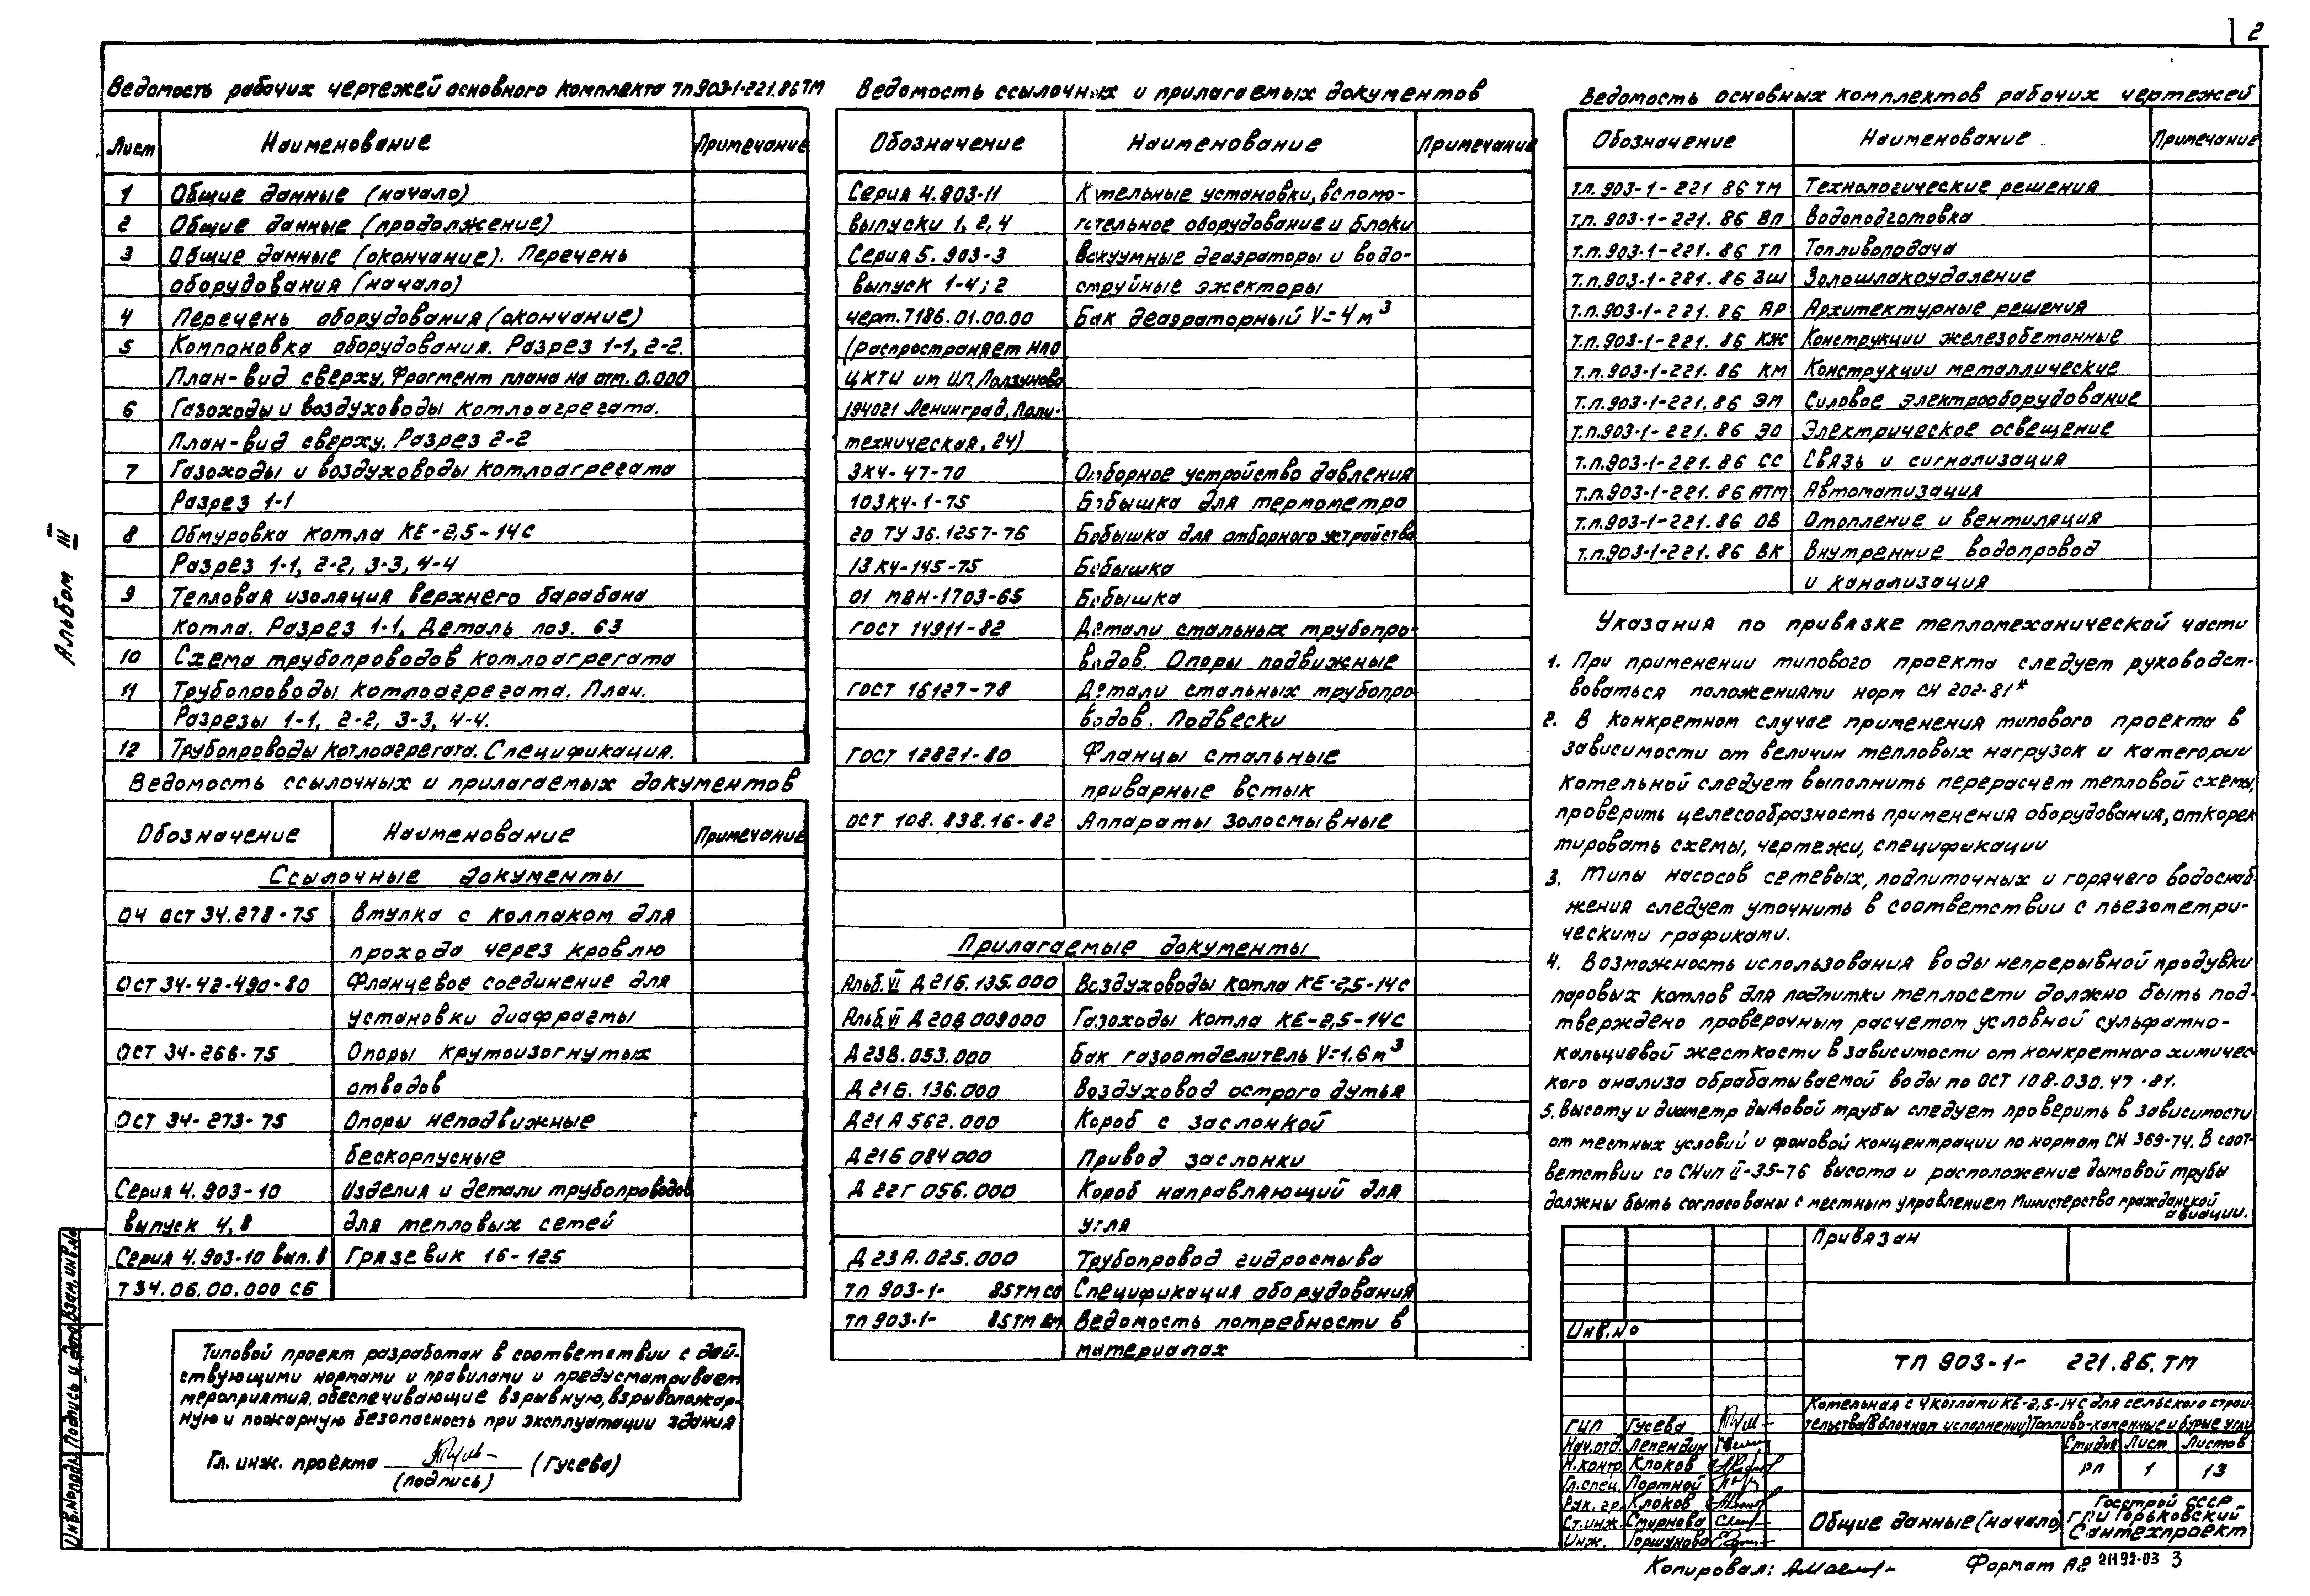 2
Ведомость рабочих чертежей основного комплекта ТП903-1-221.86ТМ
Лист Наименование Примечание
1 Общие данные (начало)
2 Общие данные (продолжение)
3 Общие данные (окончание). Перечень
оборудования (начало)
4 Перечень оборудования (окончание)
5 Компоновка оборудования. Разрез 1-1, 2-2.
План-вид сверху. Фрагмент плана на отм. 0.000
6 Газоходы и воздуховоды котлоагрегата.
План-вид сверху. Разрез 2-2
7 Газоходы и воздуховоды котлоагрегата
Разрез 1-1
8 Обмуровка котла КЕ-2,5-14С
Разрез 1-1, 2-2, 3-3, 4-4
9 Тепловая изоляция верхнего барабана
котла. Разрез 1-1, Деталь поз. 63
10 Схема трубопроводов котлоагрегата
11 Трубопроводы котлоагрегата. План.
Разрезы 1-1, 2-2, 3-3, 4-4.
12 Трубопроводы котлоагрегата. Спецификация.
Ведомость ссылочных и прилагаемых документов
Обозначение Наименование Примечание
Ссылочные документы
04 ОСТ 34.278-75 Втулка с колпаком для
прохода через кровлю
ОСТ 34-42-490-80 Фланцевое соединение для
установки диафрагмы
ОСТ 34-266-75 Опоры крутоизогнутых
отводов
ОСТ 34-273-75 Опоры неподвижные
бескорпусные
Серия 4.903-10 Изделия и детали трубопроводов
выпуск 4,8 для тепловых сетей
Серия 4.903-10 вып. 8 Грязевик 16-125
Т34.06.00.000 СБ
Типовой проект разработан в соответствии с дей-
ствующими нормами и правилами и предусматривает
мероприятия, обеспечивающие взрывную, взрывопожар-
ную и пожарную безопасность при эксплуатации здания
Гл. инж. проекта (Гусева)
(подпись)
Ведомость ссылочных и прилагаемых документов
Обозначение Наименование Примечание
Серия 4.903-11 Котельные установки, вспомо-
выпуски 1, 2, 4 гательное оборудование и блоки
Серия 5.903-3 Вакуумные деаэраторы и водо-
выпуск 1-4; 2 струйные эжекторы
черт. Т186.01.00.00 Бак деаэраторный V=4 м³
(распространяет НПО
ЦКТИ им И.П. Ползунова
194021 Ленинград, Поли-
техническая, 24)
ЗК4-47-70 Отборное устройство давления
103К4-1-75 Бобышка для термометра
20 ТУ 36.1257-76 Бобышка для отборного устройства
13К4-145-75 Бобышка
01 МВН-1703-65 Бобышка
ГОСТ 14911-82 Детали стальных трубопро-
водов. Опоры подвижные
ГОСТ 16127-78 Детали стальных трубопро
водов. Подвески
ГОСТ 12821-80 Фланцы стальные
приварные встык
ОСТ 108.838.16-82 Аппараты золосмывные
Прилагаемые документы
Альб. VI Д21Б.135.000 Воздуховоды котла КЕ-2,5-14С
Альб. VI Д20В 009000 Газоходы котла КЕ-2,5-14С
Д23В.053.000 Бак газоотделитель V=1.6 м³
Д21Б.136.000 Воздуховод острого дутья
Д21А 562.000 Короб с заслонкой
Д21Б 084000 Привод заслонки
Д 22Г 056.000 Короб направляющий для
угля
Д23А.025.000 Трубопровод гидросмыва
ТП 903-1- 85ТМ СО Спецификация оборудования
ТП 903-1- 85ТМ ВМ Ведомость потребности в
материалах
Ведомость основных комплектов рабочих чертежей
Обозначение Наименование Примечание
Т.П.903-1-221 86 ТМ Технологические решения
Т.П.903-1-221.86 ВП Водоподготовка
Т.П.903-1-221.86 ТП Топливоподача
Т.П.903-1-221.86 ЗШ Золошлакоудаление
Т.П.903-1-221.86 АР Архитектурные решения
Т.П.903-1-221.86 КЖ Конструкции железобетонные
Т.П.903-1-221.86 КМ Конструкции металлические
Т.П.903-1-221.86 ЭМ Силовое электрооборудование
Т.П.903-1-221.86 ЭО Электрическое освещение
Т.П.903-1-221.86 СС Связь и сигнализация
Т.П.903-1-221.86 АТМ Автоматизация
Т.П.903-1-221.86 ОВ Отопление и вентиляция
Т.П.903-1-221.86 ВК Внутренние водопровод
и канализация
Указания по привязке тепломеханической части
1. При применении типового проекта следует руководст-
воваться положениями норм СН 202-81*
2. В конкретном случае применения типового проекта в
зависимости от величин тепловых нагрузок и категории
котельной следует выполнить перерасчет тепловой схемы,
проверить целесообразность применения оборудования, откорек
тировать схемы, чертежи, спецификации
3. Типы насосов сетевых, подпиточных и горячего водоснаб-
жения следует уточнить в соответствии с пьезометри-
ческими графиками.
4. Возможность использования воды непрерывной продувки
паровых котлов для подпитки теплосети должно быть под-
тверждено проверочным расчетом условной сульфатно-
кальциевой жесткости в зависимости от конкретного химичес
кого анализа обрабатываемой воды по ОСТ 108.030.47-81.
5. Высоту и диаметр дымовой трубы следует проверить в зависимости
от местных условий и фоновой концентрации по нормам СН 369-74. В соот-
ветствии со СНиП II-35-76 высота и расположение дымовой трубы
должны быть согласованы с местным управлением Министерства гражданской
авиации.
Привязан
Инв.№
ТП 903-1- 221.86.ТМ
Котельная с 4 котлами КЕ-2,5-14С для сельского строи-
тельства (в блочном исполнении) Топливо-каменные и бурые угли
ГИП Гусева
Нач.отд. Лепендин
Н.контр. Клоков
Гл.спец. Портной
Рук. гр. Клоков
Ст.инж. Смирнова
Инж. Горшунова
Стадия Лист Листов
РП 1 13
Общие данные (начало)
Госстрой СССР
ГПИ Горьковский
Сантехпроект
Копировал:
Формат А2 21192-03 3
Альбом III
Инв.№подл. Подпись и дата Взам. инв.№